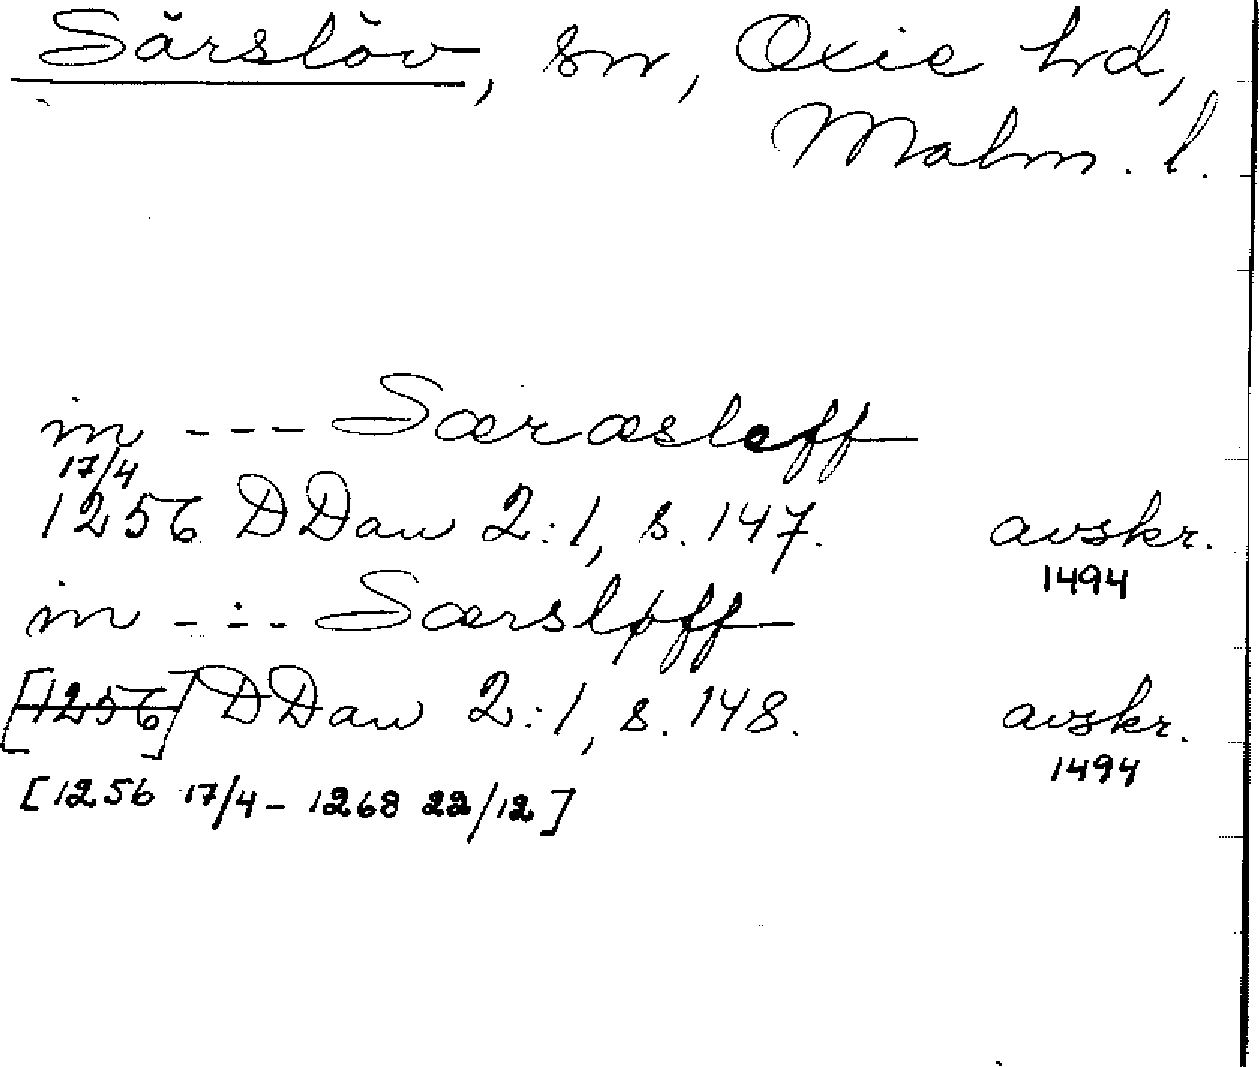 Särslöv, sn, Oxie hd,
Malm. l.
in --- Særæsleff
17/4
1256 DDan 2:1, s. 147. avskr.
1494
in --- Særsløff
[1256] DDan 2:1, s. 148. avskr.
1494
[1256 17/4 - 1268 22/12]